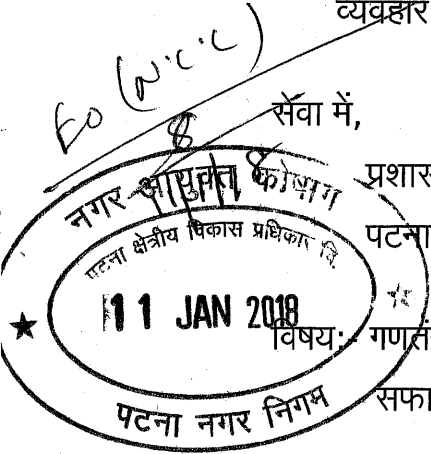 व्यवहार
EO (N.C.C)
सेवा में,
नगर आयुक्त कोषांग
प्रशास
पटना क्षेत्रीय विकास प्राधिकार वि.
पटना
11 JAN 2018
विषय:- गणतं
सफा
पटना नगर निगम